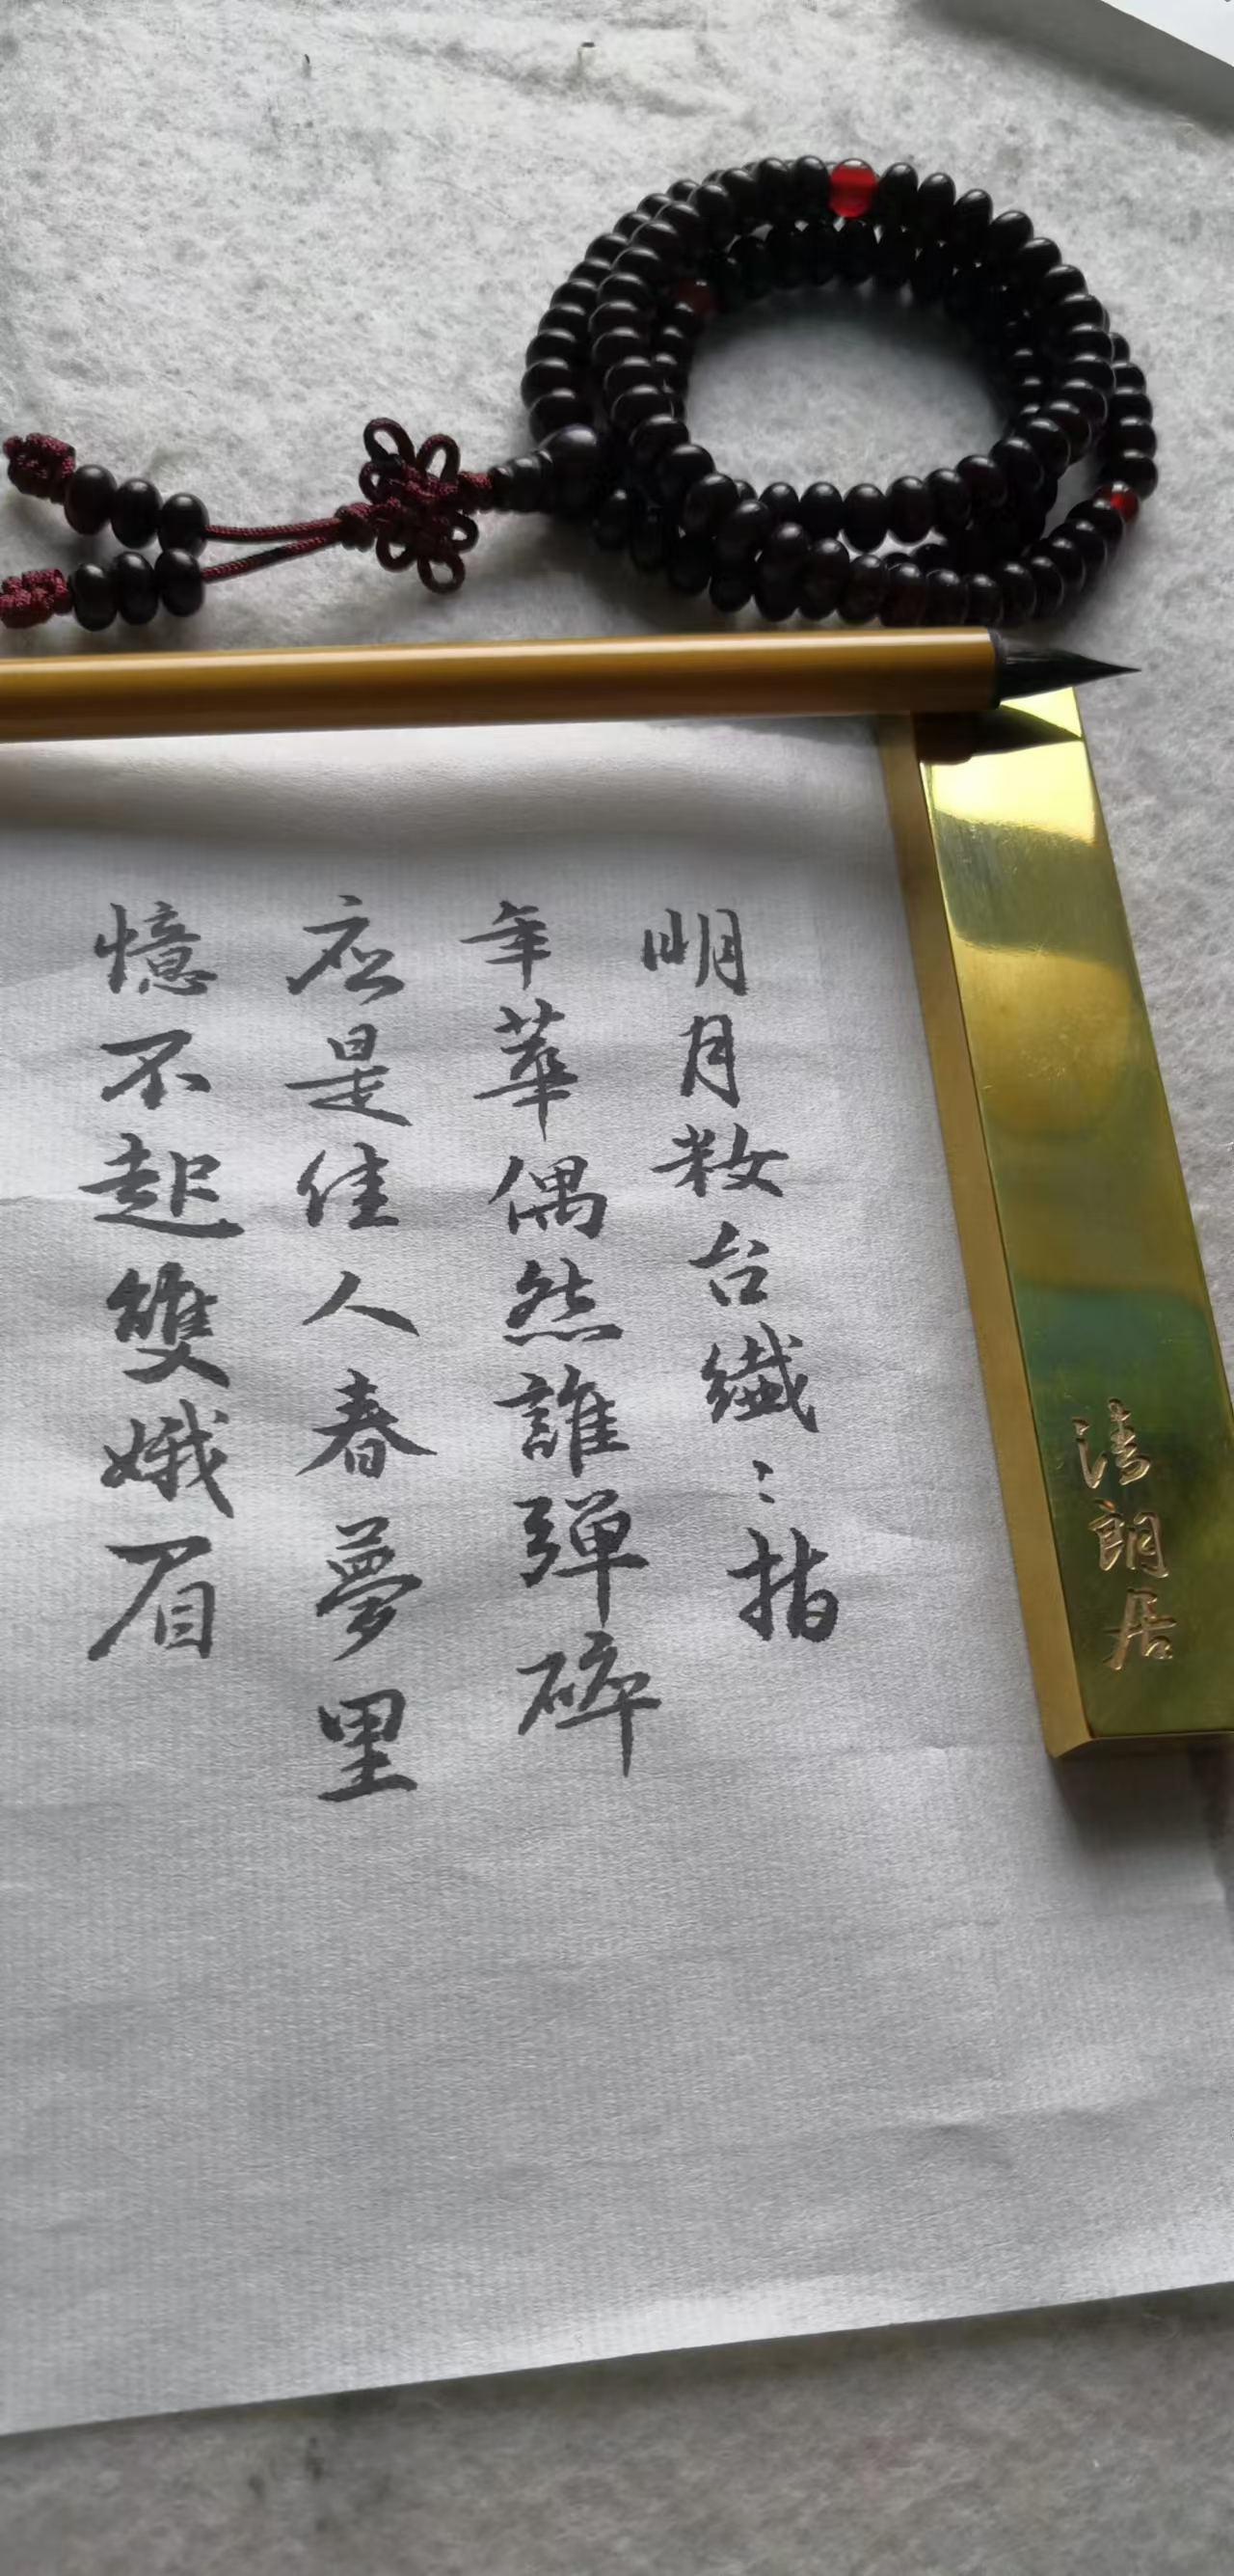 明月妝台纖〻指
年華偶然誰彈碎
应是佳人春夢里
憶不起雙娥眉
清朗居